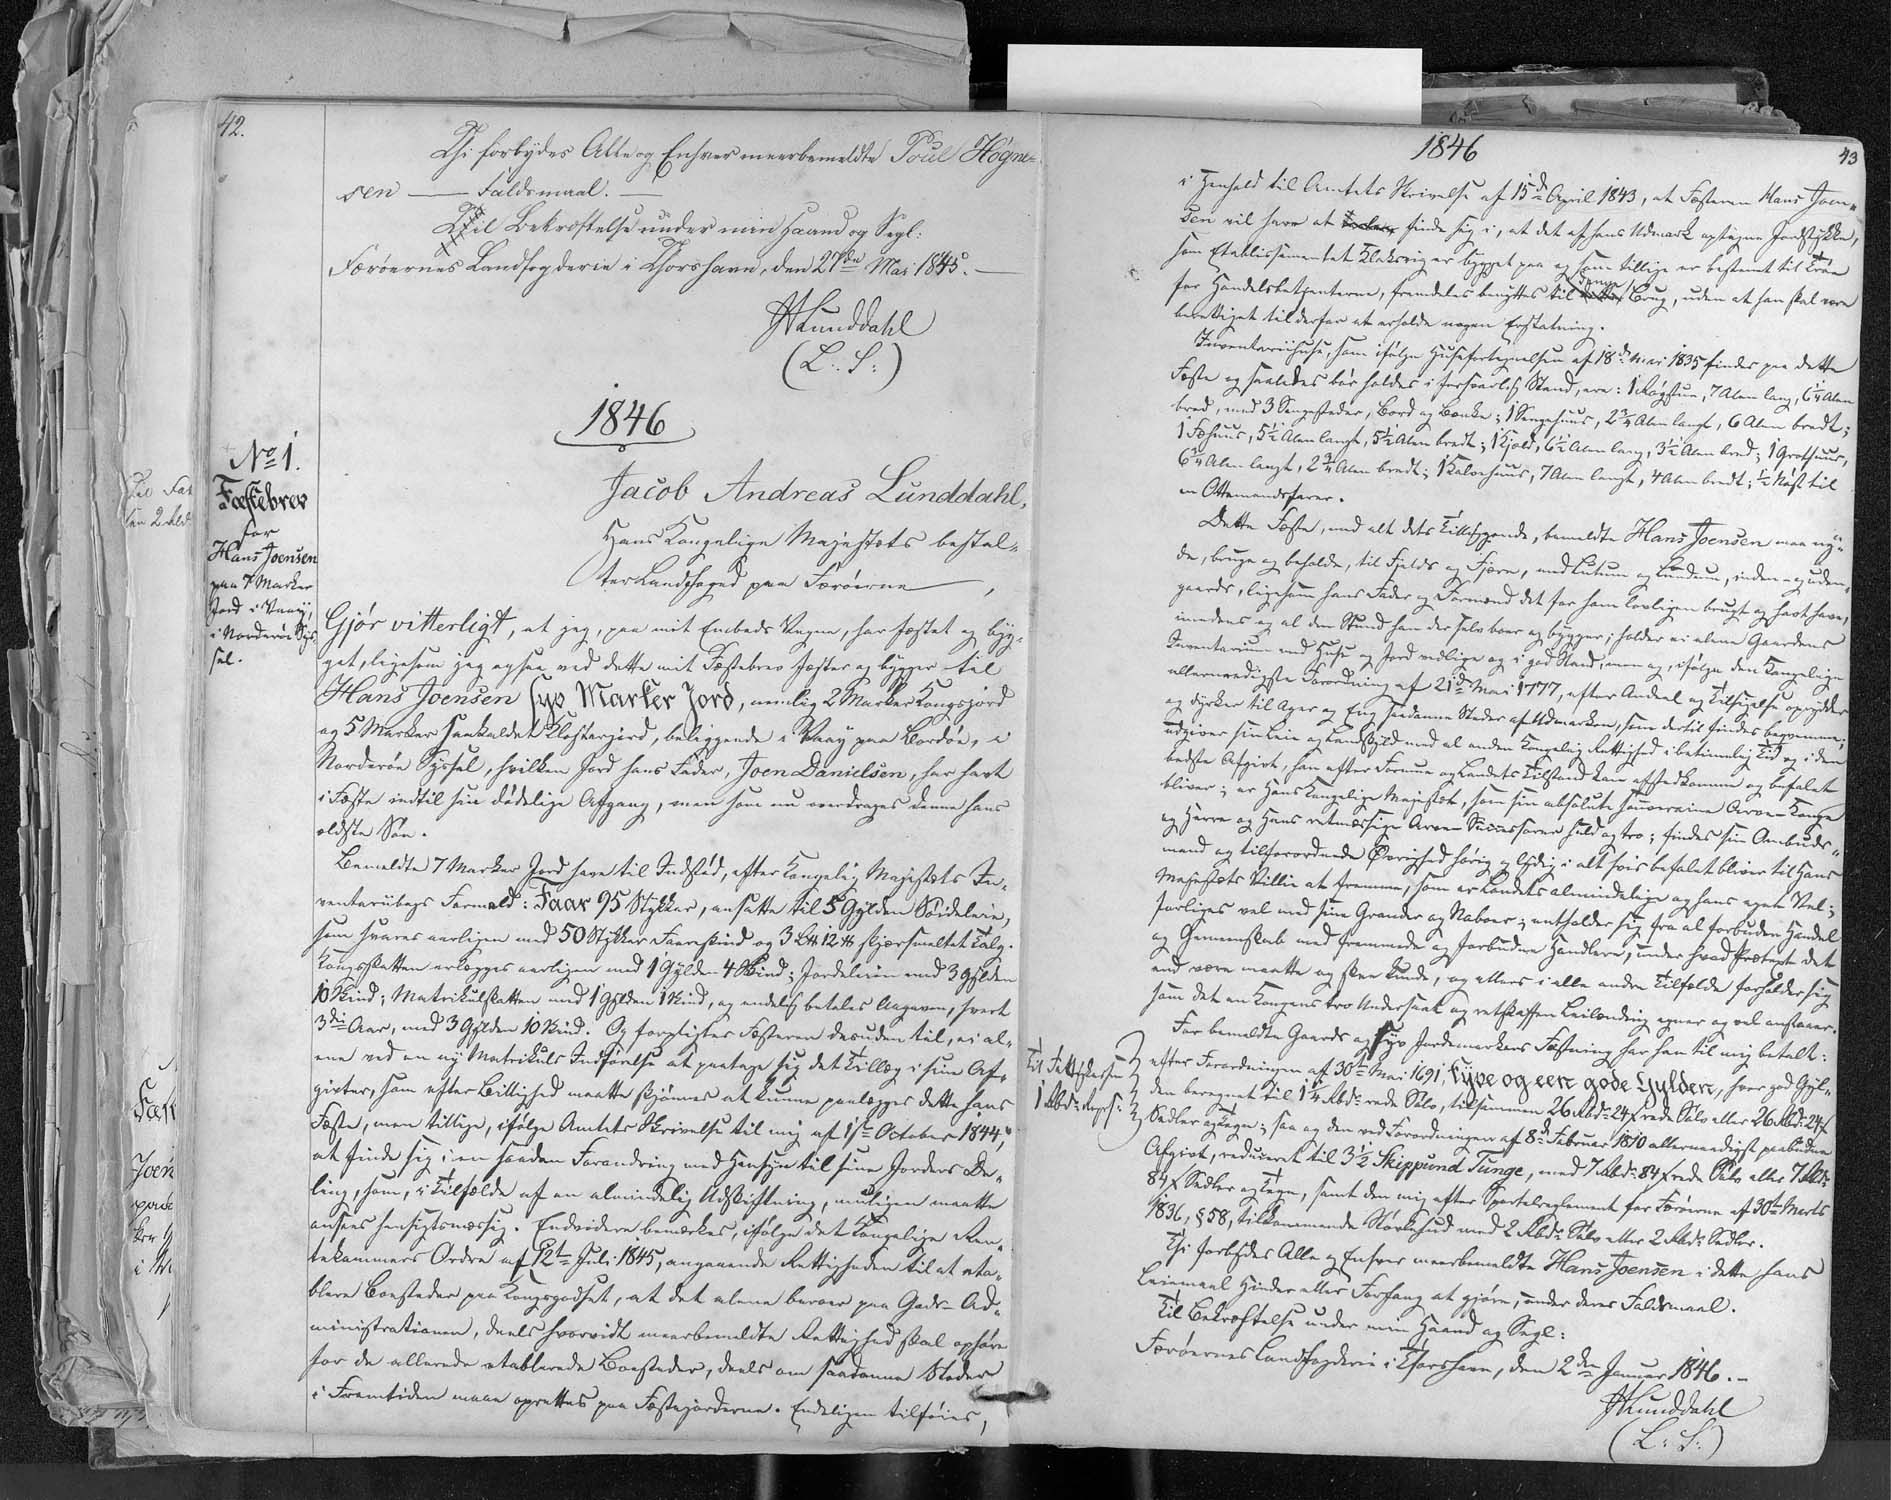 42.
Thi forbydes Alle og Enhver meerbemeldte Poul Høgne-
sen — Faldsmaal. —
Til Bekræftelse under min Haand og Segl:
Færøernes Landfogderie i Thorshavn, den 27de Mai 1845. —
JALunddahl
(L. S:)
1846
No 1.
Fæstebrev
for
Hans Joensen
paa 7 Marker
Jord i Vaay,
i Norderøe Sys-
sel.
Jacob Andreas Lunddahl,
Hans Kongelige Majestæts bestal-
ter Landfoged paa Færøerne,
Gjør vitterligt, at jeg, paa mit Embeds Vegne, har fæstet og byg-
get, ligesom jeg ogsaa ved dette mit Fæstebrev fæster og bygger til
Hans Joensen syv Marker Jord, nemlig 2 Marker Kongsjord
og 5 Marker saakaldet Klosterjord, beliggende i Vaay paa Bordøe, i
Norderøe Syssel, hvilken Jord hans Fader, Joen Danielsen, har havt
i Fæste indtil sin dødelige Afgang, men som nu overdrages denne hans
ældste Søn.
Bemeldte 7 Marker Jord have til Indstød, efter Kongelig Majestæts In-
ventariibogs Formeld: Faar 95 Stykker, ansatte til 5 Gylden Søideleie,
som svares aarligen med 50 Stykker Faareskind og 3 L℔ 12 ℔ skjærsmeltet Talg.
Kongsskatten erlægges aarligen med 1 Gylden 4 Skind; Jordeleien med 3 Gylden
10 Skind; Matrikulskatten med 1 Gylden 1 Skind, og endelig betales Aagaven, hvert
3die Aar, med 3 Gylden 10 Skind. Og forpligtes Fæsteren desuden til, ei al-
ene ved en ny Matrikuls Indførelse at paatage sig det Tillæg i sine Af-
givter, som efter Billighed maatte skjønnes at kunne paalægges dette hans
Fæste, men tillige, ifølge Amtets Skrivelse til mig af 1ste October 1844,
at finde sig i en saadan Forandring med Hensyn til sine Jorders De-
ling, som, i Tilfælde af en almindelig Udskiftning, muligen maatte
ansees hensigtsmæssig. Endvidere bemærkes, ifølge det Kongelige Ren-
tekammers Ordre af 12te Juli 1845, angaaende Rettigheden til at eta-
blere Boesteder paa Kongsgodset, at det alene beroer paa Gods-Ad-
ministrationen, deels hvorvidt meerbemeldte Rettighed skal ophøre
for de allerede etablerede Boesteder, deels om saadanne Steder
i Fremtiden maae oprettes paa Fæstejorderne. Endeligen tilføies,
1846
43
i Henhold til Amtets Skrivelse af 15de April 1843, at Fæsteren Hans Joen-
sen vil have at finde sig i, at det af hans Udmark optagne Jordstykke,
som Etablissementet Klaksvig er bygget paa og som tillige er bestemt til Trøe
for Handelsbetjenterne, fremdeles benyttes til samme Brug, uden at han skal være
berettiget til derfor at erholde nogen Erstatning.
Inventariihuse, som ifølge Husefortegnelsen af 18de Mai 1835 findes paa dette
Fæste og saaledes bør holdes i forsvarlig Stand, ere: 1 Røgstue, 7 Alen lang, 6¼ Alen
bred, med 3 Sengesteder, Bord og Bænke; 1 Sengehuus, 2¾ Alen langt, 6 Alen bredt;
1 Fæhuus, 5½ Alen langt, 5½ Alen bredt; 1 Hjeld, 6½ Alen lang, 3½ Alen bred; 1 Grothuus,
6¾ Alen langt, 2¾ Alen bredt; 1 Kalvehuus, 7 Alen langt, 4 Alen bredt; ½ Nøst til
en Ottemandsfarer.
Dette Fæste, med alt dets Tilliggende, bemeldte Hans Joensen maa ny-
de, bruge og beholde, til Fjelds og Fjære, med Lutum og Lundum, inden- og uden-
gaards, ligesom hans Fader og Formænd det før ham lovligen brugt og havt have,
imedens og al den Stund han der selv boer og bygger; holder ei alene Gaardens
Inventarium med Huse og Jord vedlige og i god Stand, men og, ifølge den Kongelige
allernaadigste Forordning af 21de Mai 1777, efter Andeel og Tilsigelse oprydder
og dyrker til Ager og Eng saadanne Steder af Udmarken, som dertil findes beqvemme;
udgiver sin Leie og Landskyld med al anden Kongelig Rettighed i betimelig Tid og i den
bedste Afgivt, han efter Formue og Landets Tilstand kan afstedkomme og befalet
bliver; er Hans Kongelige Majestæt, som sin absolute souveraine Arve-Konge
og Herre og Hans retmæssige Arve-Successorer huld og tro; findes sin Ombuds-
mand og tilforordnede Øvrighed hørig og lydig i alt hvis befalet bliver til Hans
Majestæts Villie at fremme, som er Landets almindelige og hans egen Vel;
forliges vel med sine Grander og Naboer; entholder sig fra al forbuden Handel
og Gemeenskab med fremmede og forbudne Handlere, under hvad Prætext det
end være maatte og skee kunde, og ellers i alle andre Tilfælde forholder sig
som det en Kongens tro Undersaat og retskaffen Leilænding egner og vel anstaaer.
For bemeldte Gaards og syv Jordemarkers Fæstning har han til mig betalt:
Til Fattigkassen
1 Rbd: Repr:
efter Forordningen af 30te Mai 1691, Tyve og een gode Gylden, hver god Gyl-
den beregnet til 1¼ Rbd: rede Sølv, tilsammen 26 Rbd: 24 ß rede Sølv eller 26 Rbd: 24 ß
Sedler og Tegn; saa og den ved Forordningen af 8de Februar 1810 allernaadigst paabudne
Afgivt, reduceret til 3½ Skippund Tunge, med 7 Rbd: 84 ß rede Sølv eller 7 Rbd:
84 ß Sedler og Tegn, samt den mig efter Sportelreglement for Færøerne af 30te Marts
1836, §58, tilkommende Støvlehud med 2 Rbd: Sølv eller 2 Rbd: Sedler.
Thi forbydes Alle og Enhver meerbemeldte Hans Joensen i dette hans
Leiemaal Hinder eller Forfang at gjøre, under deres Faldsmaal.
Til Bekræftelse under min Haand og Segl:
Færøernes Landfogderie i Thorshavn, den 2den Januar 1846. —
JALunddahl
(L: S:)